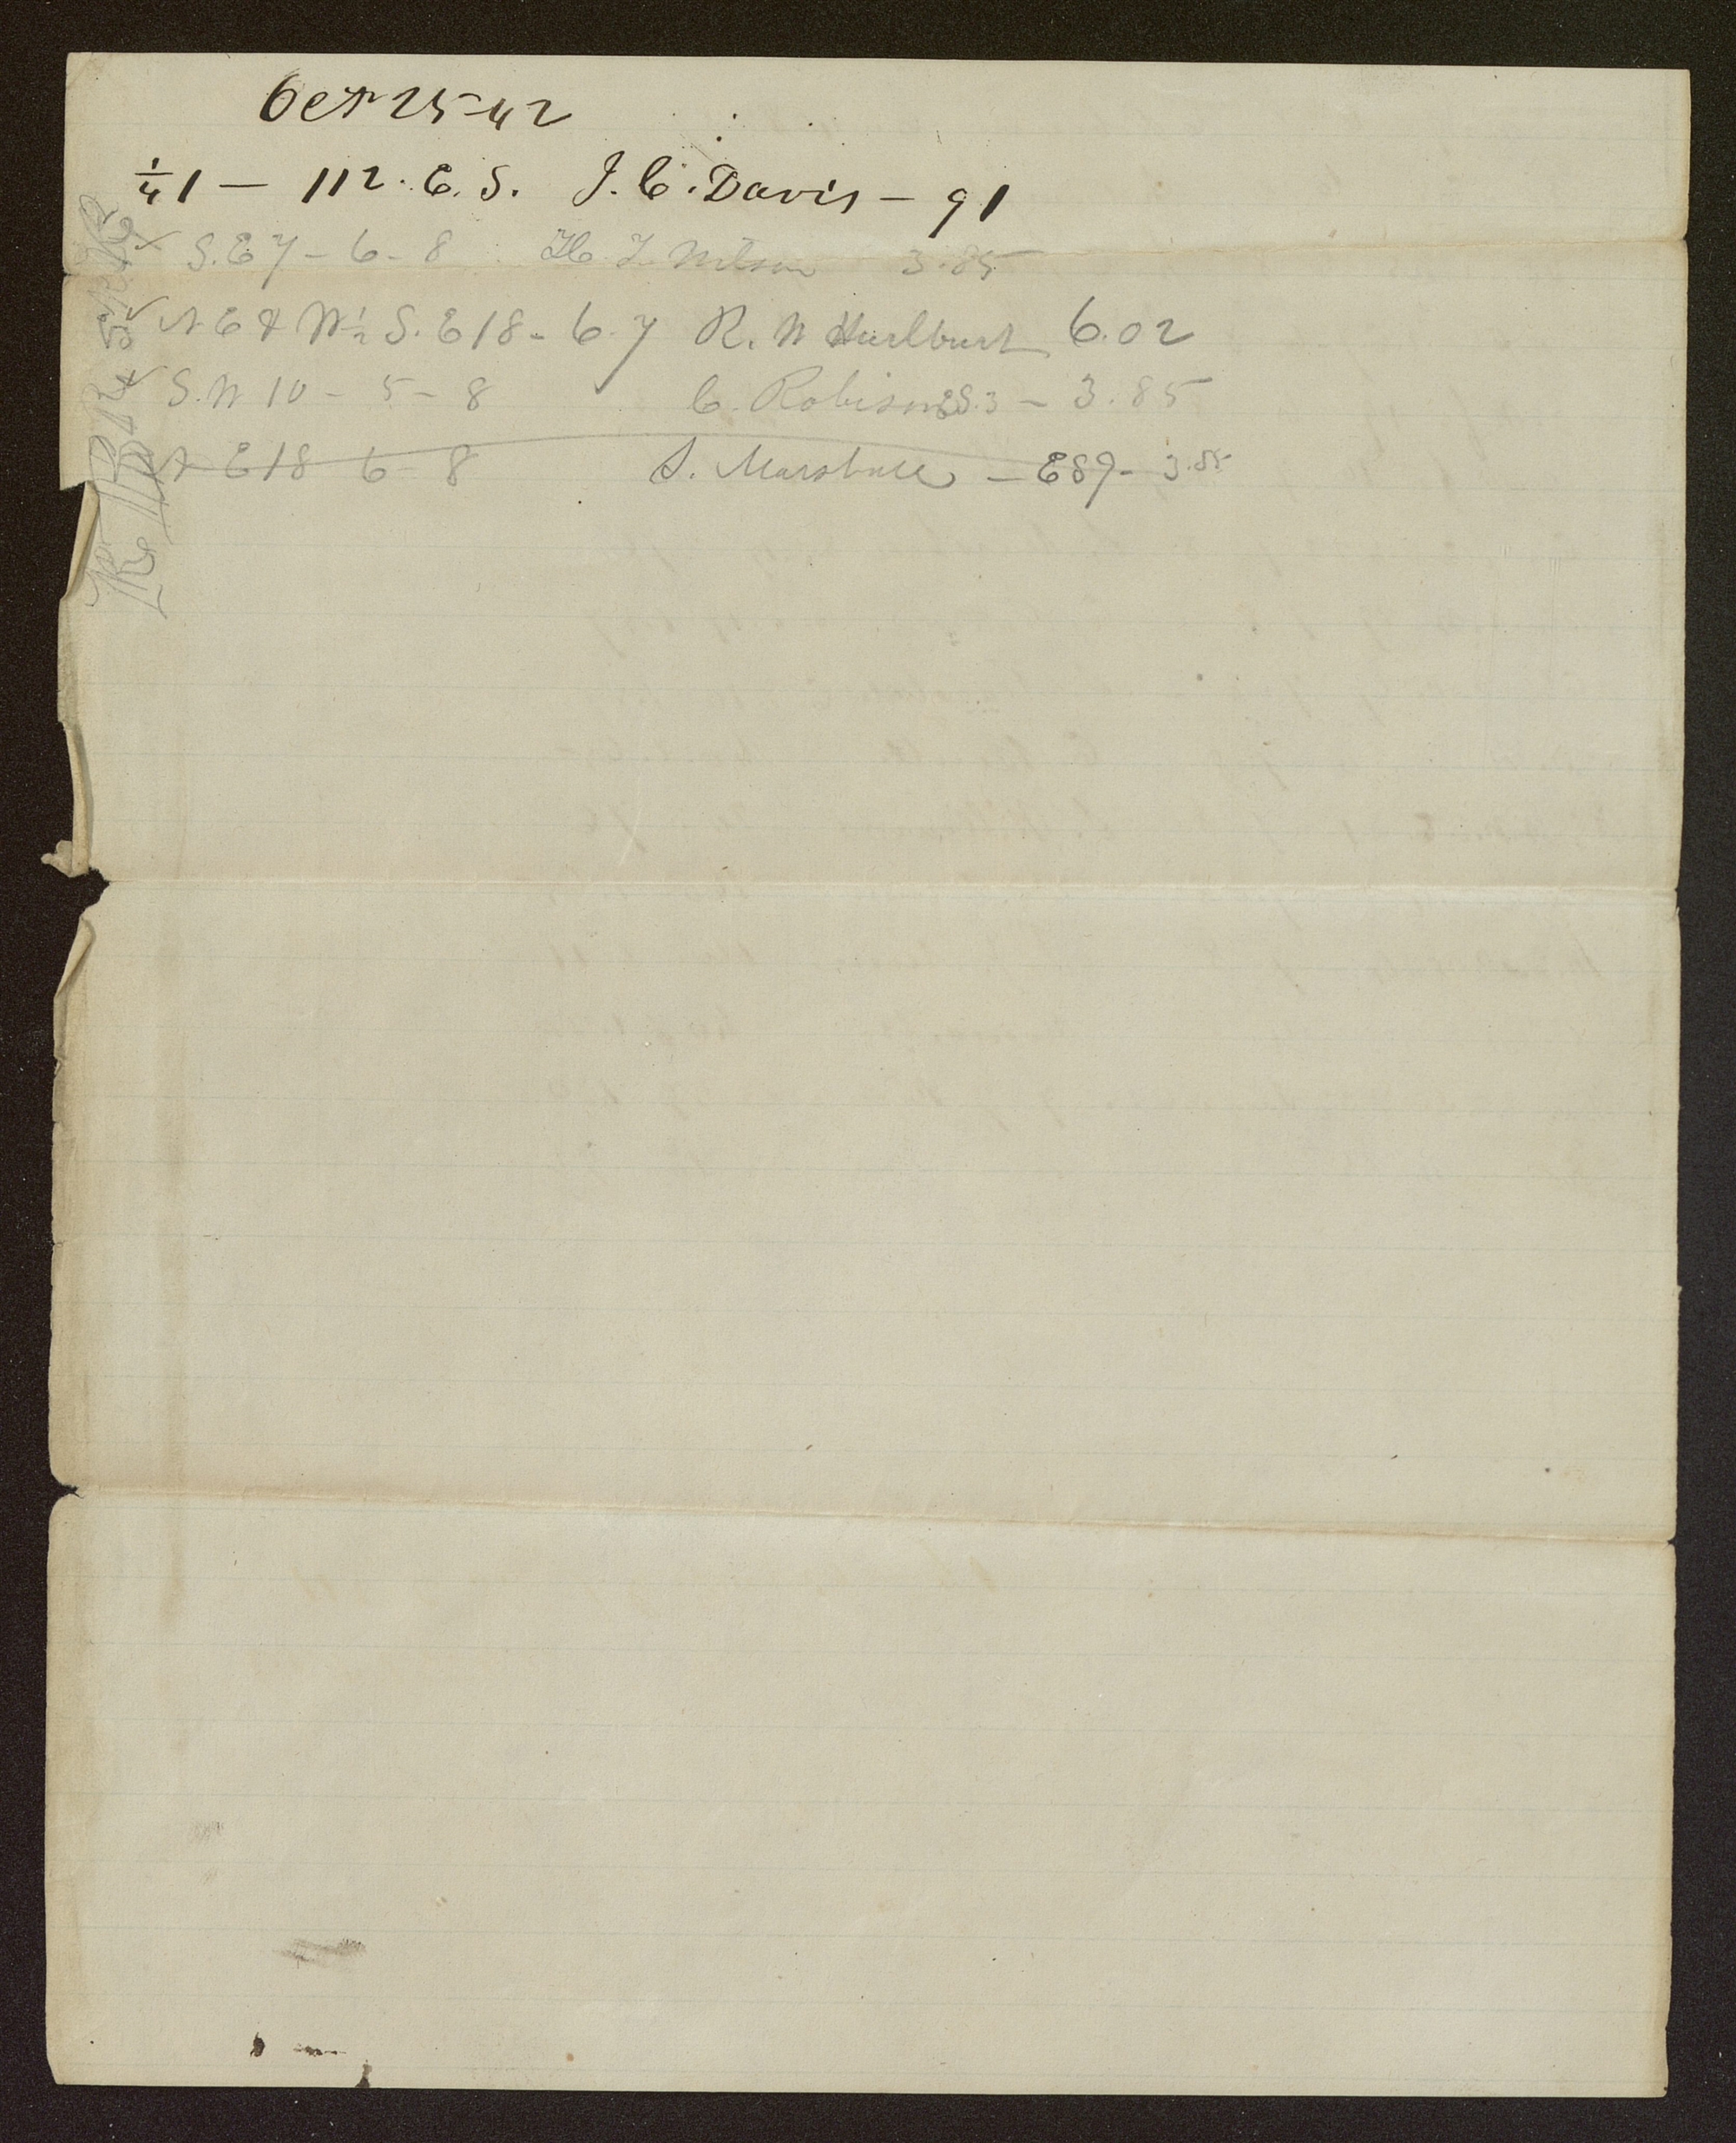 Oct 25-42
1/4 1 — 112. E. S. J. C. Davis — 91
✓ S. E 7 - 6 - 8 3.85
✓ N E & W ½ S. E 18 - 6. 7 R. W Hurlburt 6.02
✓ S. W 10 - 5 - 8 C. Robison ES.3 — 3.85
N E 18 6 - 8 S. Marshall — E S 9 - 3.85